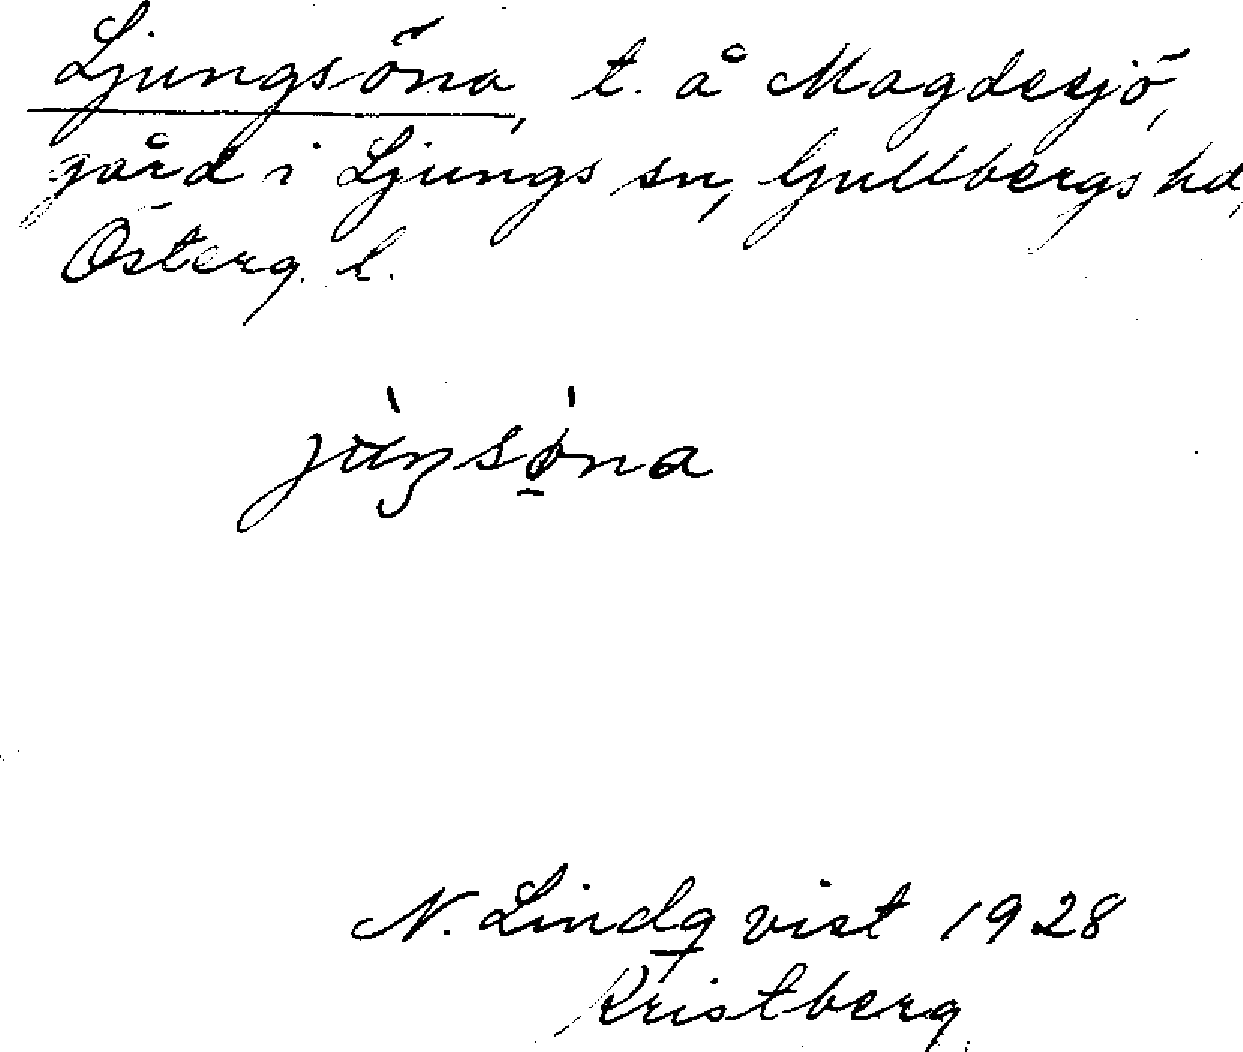 Ljungsöna, t. å Magdesjö,
gård i Ljungs sn, Gullbergs hd,
Österg. l.
jùŋsø̀na
N. Lindqvist 1928
Kristberg